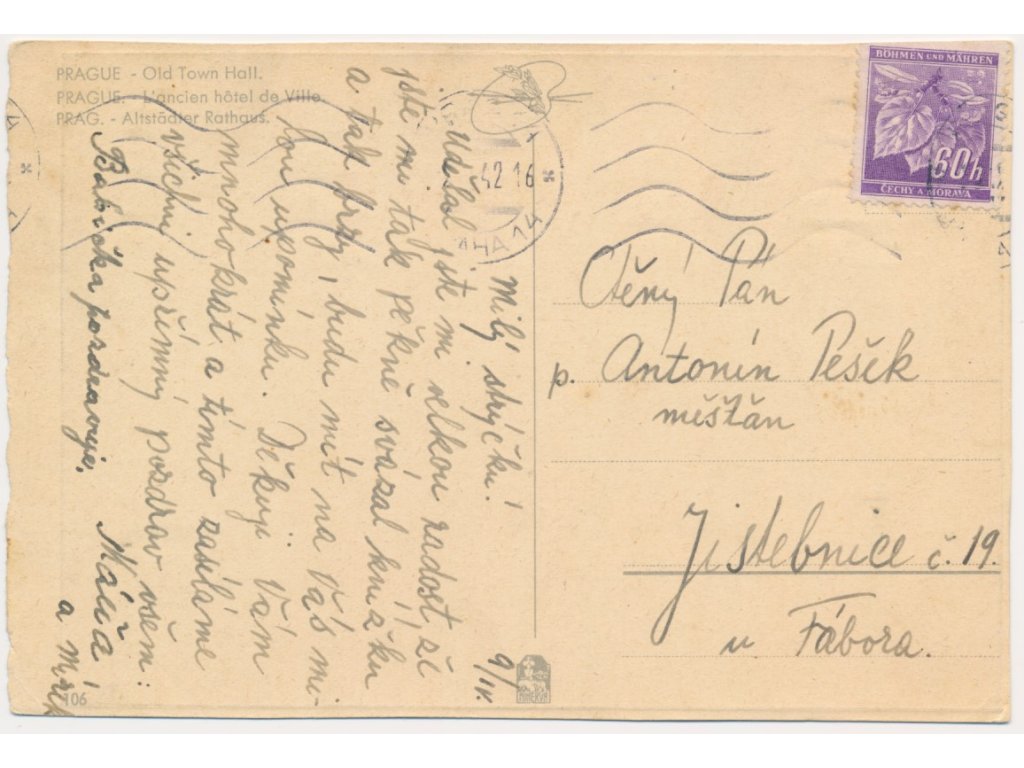 PRAGUE - Old Town Hall.
PRAGUE. - L'ancien hôtel de Ville
PRAG. - Altstädter Rathaus.
Milý strýčku! 9/IV.
Udělal jste m velkou radost že
jste mi tak pěkně svázal knížku
a tak brzy, budu mít na Vás mi-
lou upomínku. Děkuji Vám
mnohokrát a tímto zasíláme
všichni upřímný pozdrav všem.
Babička pozdravuje. Mářa
a
106
42 16
AHA 14
BÖHMEN UND MÄHREN
60h
ČECHY A MORAVA
Ctěný Pán
p. Antonín Pešek
měšťán
Jistebnice č. 19.
u Tábora.
MINERVA